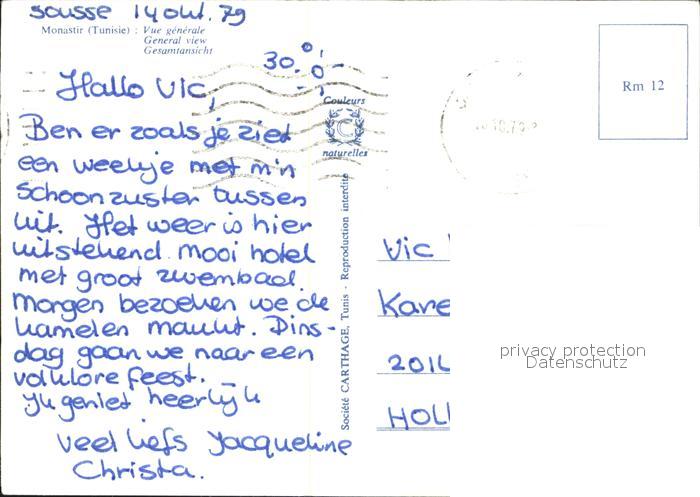 Sousse 14 okt. 79
Monastir (Tunisie) : Vue générale
General view
Gesamtansicht
30.°
Hallo Vic,
Ben er zoals je ziet
een weekje met m'n
schoonzuster tussen
uit. Het weer is hier
uitstekend. Mooi hotel
met groot zwembad.
Morgen bezoeken we de
kamelen markt. Dins-
dag gaan we naar een
volklore feest.
Ik geniet heerlijk
veel liefs Jacqueline
Christa.
Couleurs
C
naturelles
Société CARTHAGE, Tunis - Reproduction interdite
Rm 12
Vic
Kare
201
HOL
privacy protection
Datenschutz